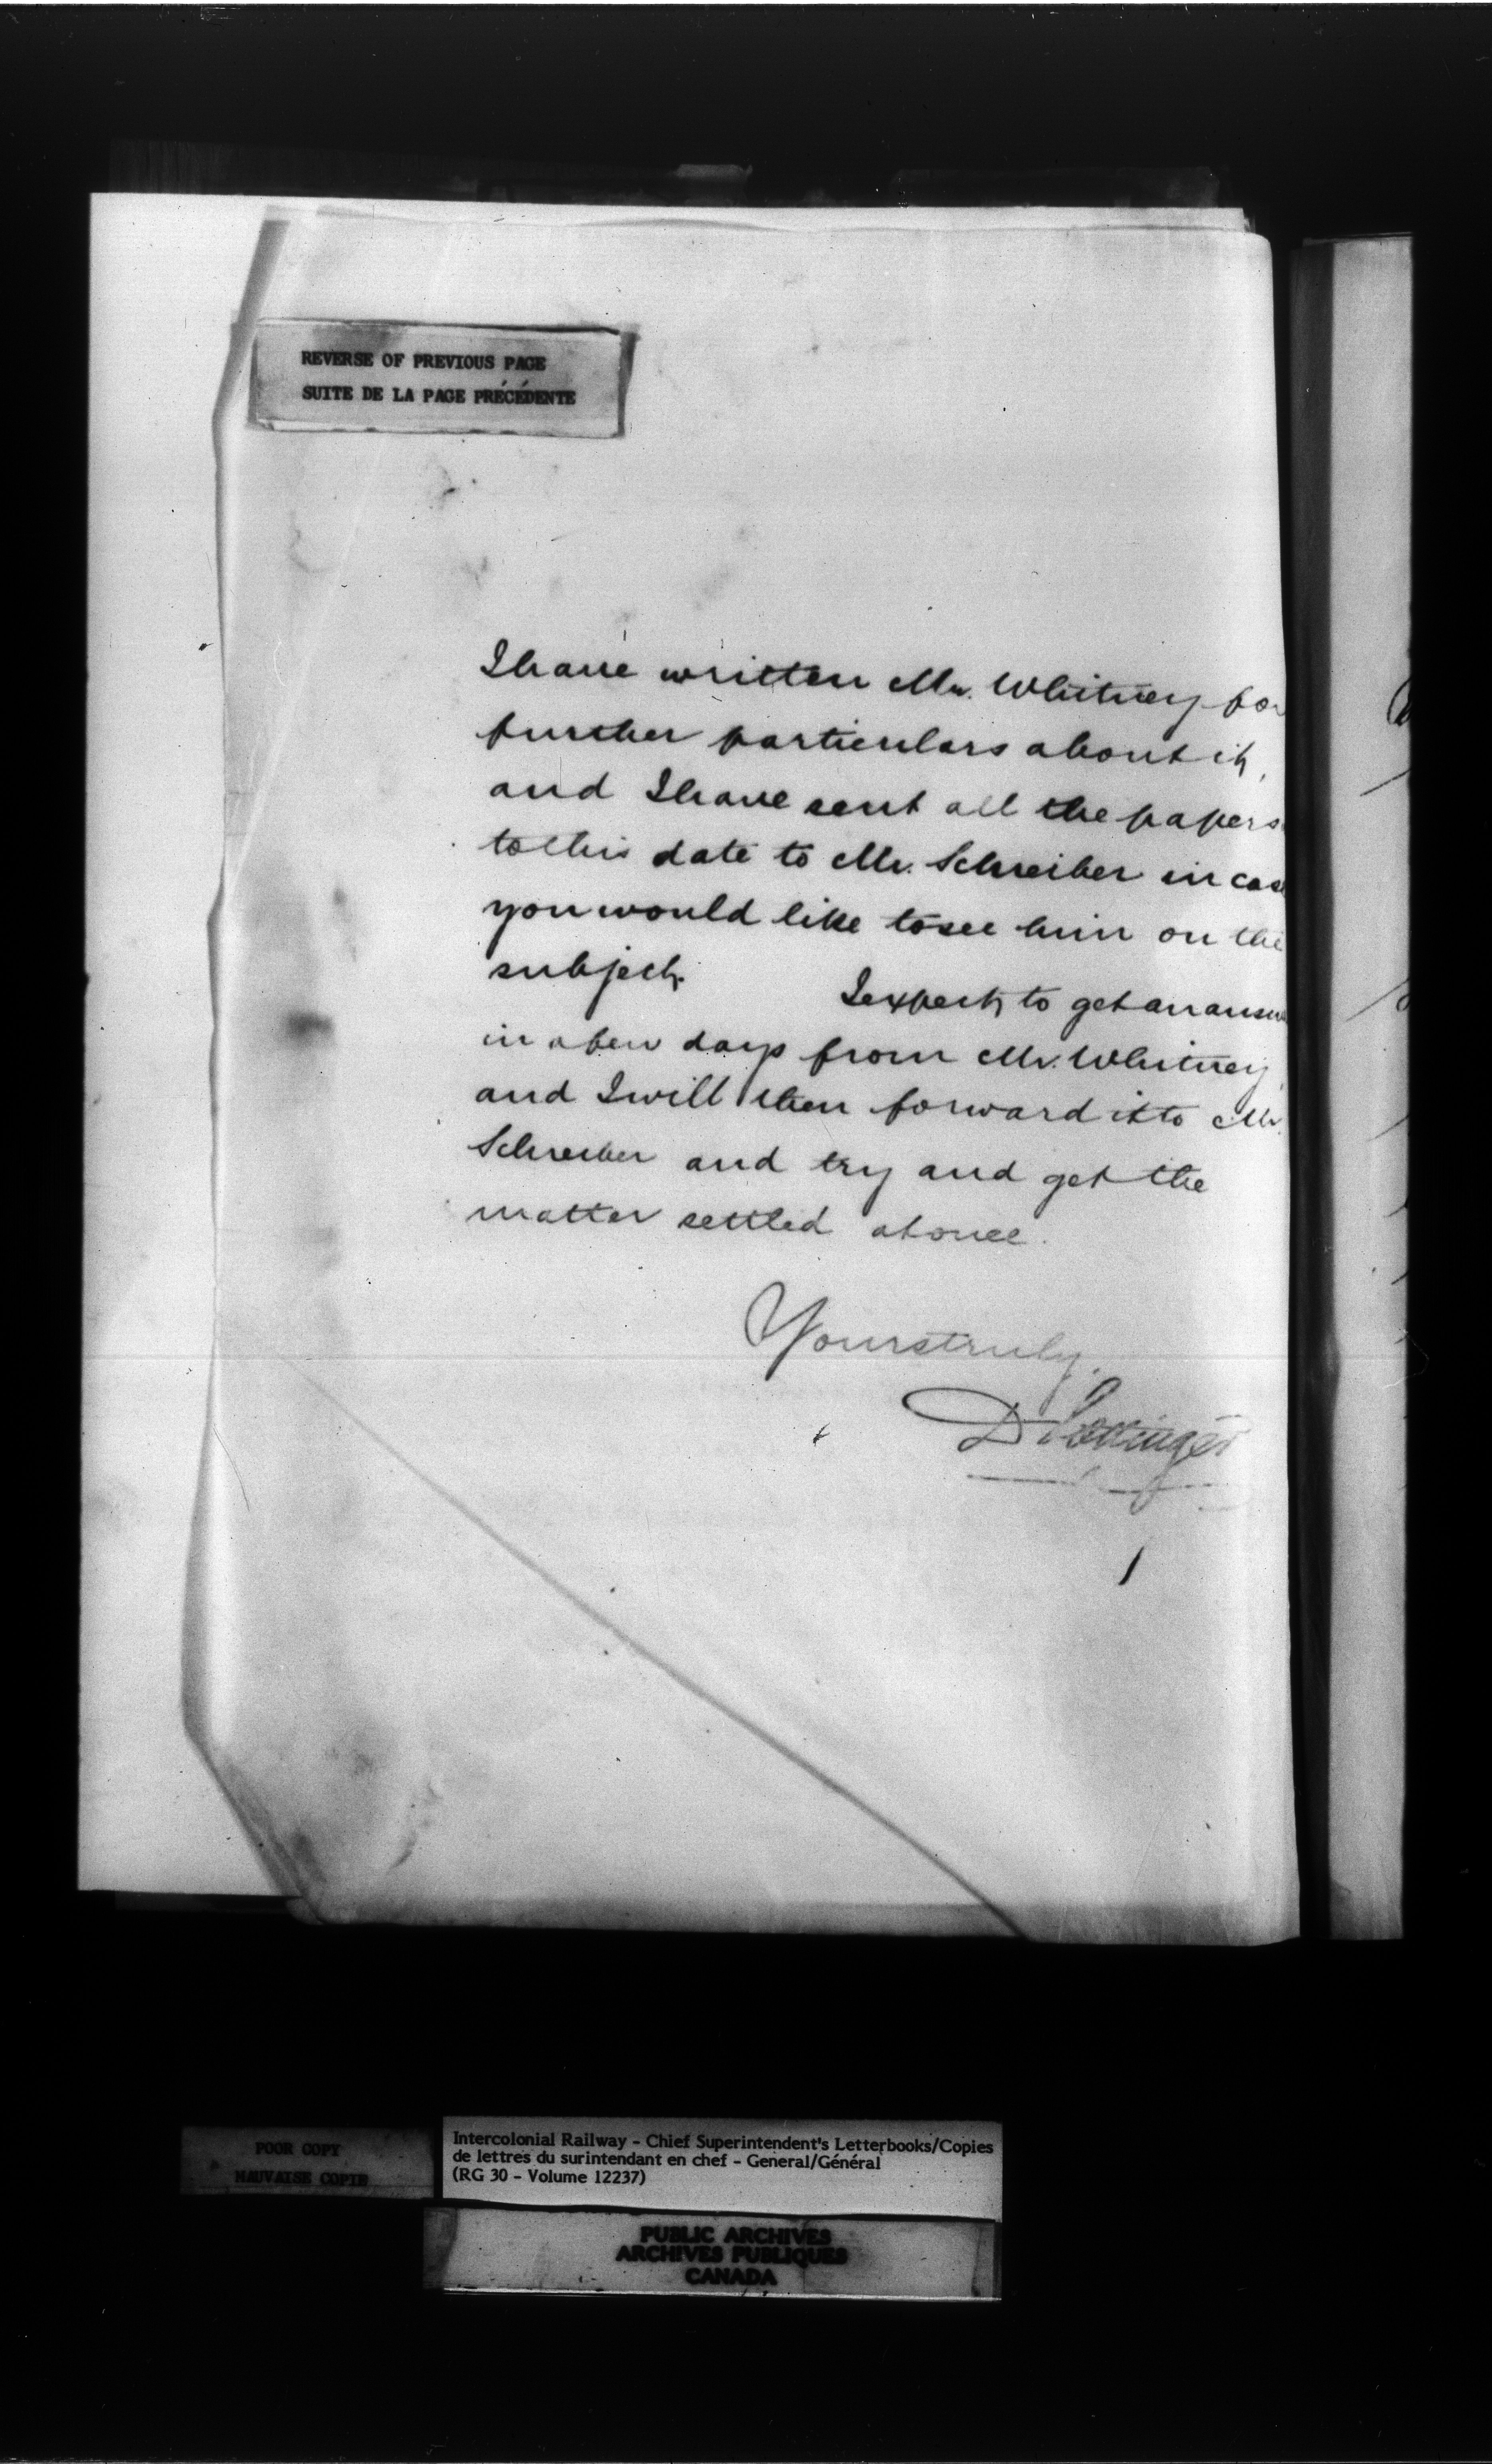 REVERSE OF PREVIOUS PAGE
SUITE DE LA PAGE PRÉCÉDENTE
I have written Mr. Whitney for
further particulars about it,
and I have sent all the papers
to this date to Mr. Schreiber in case
you would like to see him on the
subject.
I expect to get an answ
in a few days from Mr. Whitney
and I will then forward it to Mr.
Schreiber and try and get the
matter settled at once.
Yours truly,
D Pottinger
POOR COPY
MAUVAISE COPIE
Intercolonial Railway - Chief Superintendent's Letterbooks/Copies
de lettres du surintendant en chef - General/Général
(RG 30 - Volume 12237)
PUBLIC ARCHIVES
ARCHIVES PUBLIQUES
CANADA